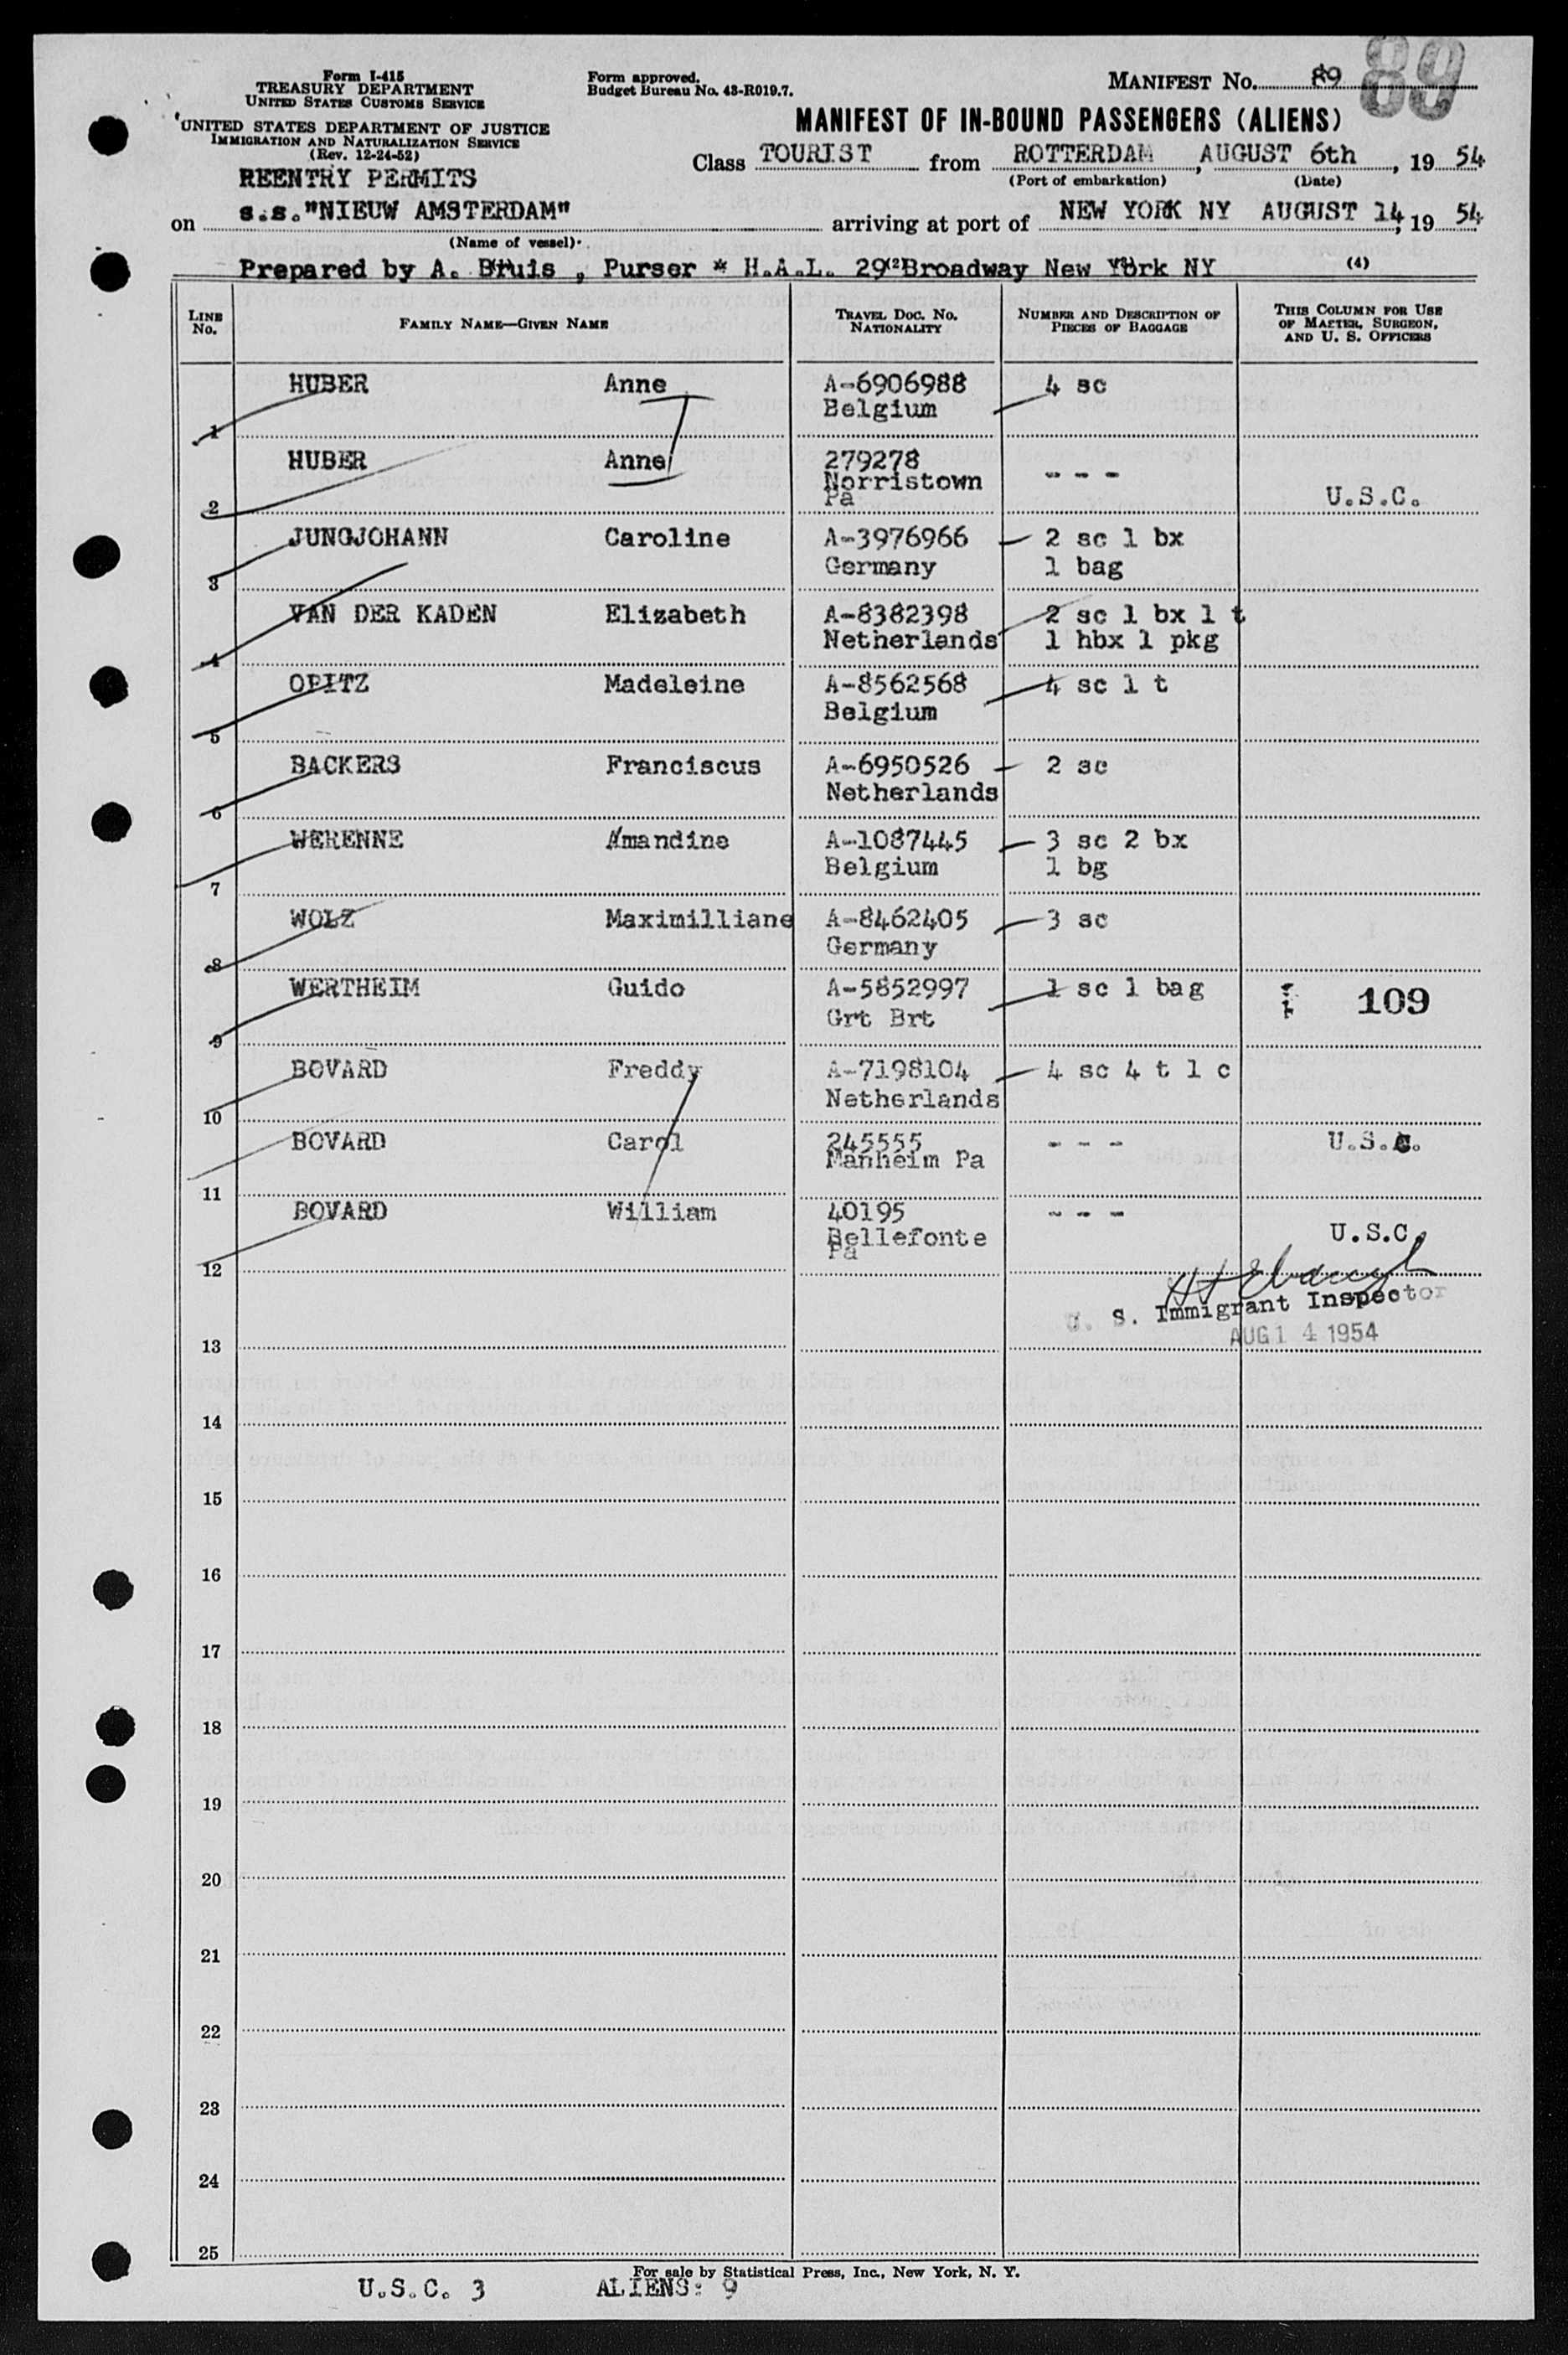 Form I-415
TREASURY DEPARTMENT
UNITED STATES CUSTOMS SERVICE
UNITED STATES DEPARTMENT OF JUSTICE
IMMIGRATION AND NATURALIZATION SERVICE
(Rev. 12-24-52)
REENTRY PERMITS
Form approved.
Budget Bureau No. 43-R019.7.
MANIFEST No. 89
89
MANIFEST OF IN-BOUND PASSENGERS (ALIENS)
Class TOURIST from ROTTERDAM, AUGUST 6th, 19 54
(Port of embarkation) (Date)
on s.s."NIEUW AMSTERDAM" arriving at port of NEW YORK NY AUGUST 14, 19 54
(Name of vessel)
Prepared by A. Bruis , Purser * H.A.L. 29 Broadway New York NY
(2) (4)
LINE No. FAMILY NAME—GIVEN NAME TRAVEL DOC. NO. NATIONALITY NUMBER AND DESCRIPTION OF PIECES OF BAGGAGE THIS COLUMN FOR USE OF MASTER, SURGEON, AND U. S. OFFICERS
HUBER Anne A-6906988 4 sc
Belgium
1
HUBER Anne 279278 - - -
Norristown
Pa U.S.C.
2
JUNGJOHANN Caroline A-3976966 2 sc 1 bx
Germany 1 bag
3
VAN DER KADEN Elizabeth A-8382398 2 sc 1 bx 1 t
Netherlands 1 hbx 1 pkg
4
OPITZ Madeleine A-8562568 4 sc 1 t
Belgium
5
BACKERS Franciscus A-6950526 2 sc
Netherlands
6
WERENNE Amandine A-1087445 3 sc 2 bx
Belgium 1 bg
7
WOLZ Maximilliane A-8462405 3 sc
Germany
8
WERTHEIM Guido A-5852997 1 sc 1 bag 109
Grt Brt
9
BOVARD Freddy A-7198104 4 sc 4 t 1 c
Netherlands
10
BOVARD Carol 245555 - - - U.S.C.
Manheim Pa
11
BOVARD William 40195 - - -
Bellefonte U.S.C.
Pa
12
U. S. Immigrant Inspector
AUG 14 1954
13
14
15
16
17
18
19
20
21
22
23
24
25
For sale by Statistical Press, Inc., New York, N. Y.
U.S.C. 3 ALIENS: 9